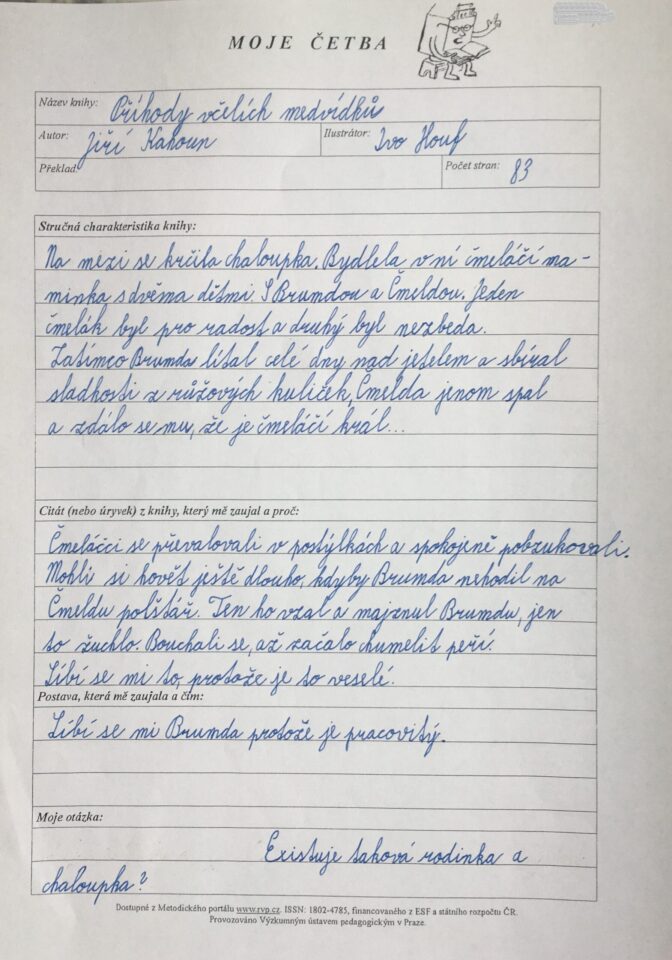 MOJE ČETBA
Název knihy: Příhody včelích medvídků
Autor: Jiří Kahoun Ilustrátor: Ivo Houf
Překlad Počet stran: 83
Stručná charakteristika knihy:
Na mezi se krčila chaloupka. Bydlela v ní čmeláčí ma-
minka s dvěma dětmi. S Brumdou a Čmeldou. Jeden
čmelák byl pro radost a druhý byl nezbeda.
Zatímco Brumda lítal celé dny nad jetelem a sbíral
sladkosti z růžových kuliček, Čmelda jenom spal
a zdálo se mu, že je čmeláčí král...
Citát (nebo úryvek) z knihy, který mě zaujal a proč:
Čmeláčci se převalovali v postýlkách a spokojeně pobzukovali.
Mohli si hovět ještě dlouho, kdyby Brumda nehodil na
Čmeldu polštář. Ten ho vzal a majznul Brumdu, jen
to žuchlo. Bouchali se, až začalo chumelit peří.
Líbí se mi to, protože je to veselé.
Postava, která mě zaujala a čím:
Líbí se mi Brumda protože je pracovitý.
Moje otázka:
Existuje taková rodinka a
chaloupka?
Dostupné z Metodického portálu www.rvp.cz. ISSN: 1802-4785, financovaného z ESF a státního rozpočtu ČR.
Provozováno Výzkumným ústavem pedagogickým v Praze.